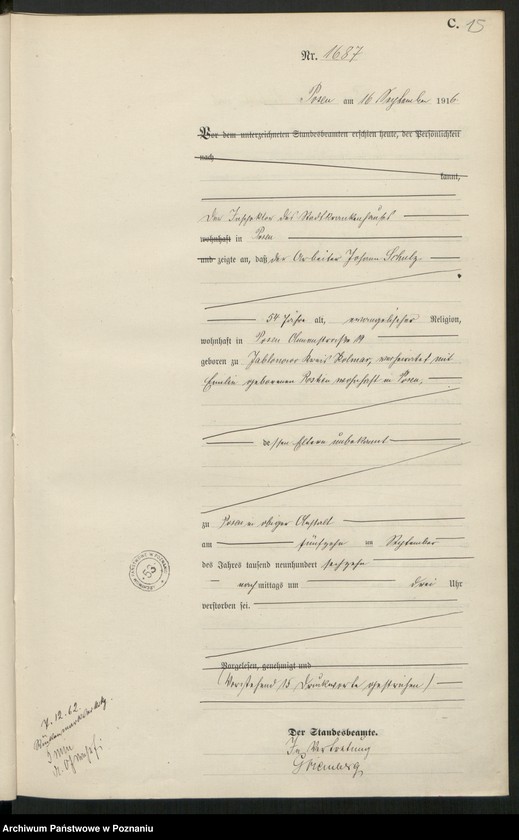 C. 15
Nr. 1687
Posen am 16 September 1916
Vor dem unterzeichneten Standesbeamten erschien heute, der Persönlichkeit
nach
kannt,
Der Inspektor des Stadtkrankenhauses
wohnhaft in Posen
und zeigte an, daß der Arbeiter Johann Schulz
54 Jahre alt, evangelischer Religion,
wohnhaft in Posen 19
geboren zu Jablonowo Kreis Kolmar, verheiratet mit
Emilie geborenen wohnhaft in Posen,
dessen Eltern unbekannt
zu Posen in obiger Anstalt
am fünfzehn en September
des Jahres tausend neunhundert sechzehn
nachmittags um drei Uhr
verstorben sei.
Vorgelesen, genehmigt und
(Vorstehend 15 Druckworte gestrichen)
Der Standesbeamte.
In Vertretung
ARCHIWUM PAŃSTWOWE W POZNANIU
53
7.12.62.
Archiwum Państwowe w Poznaniu